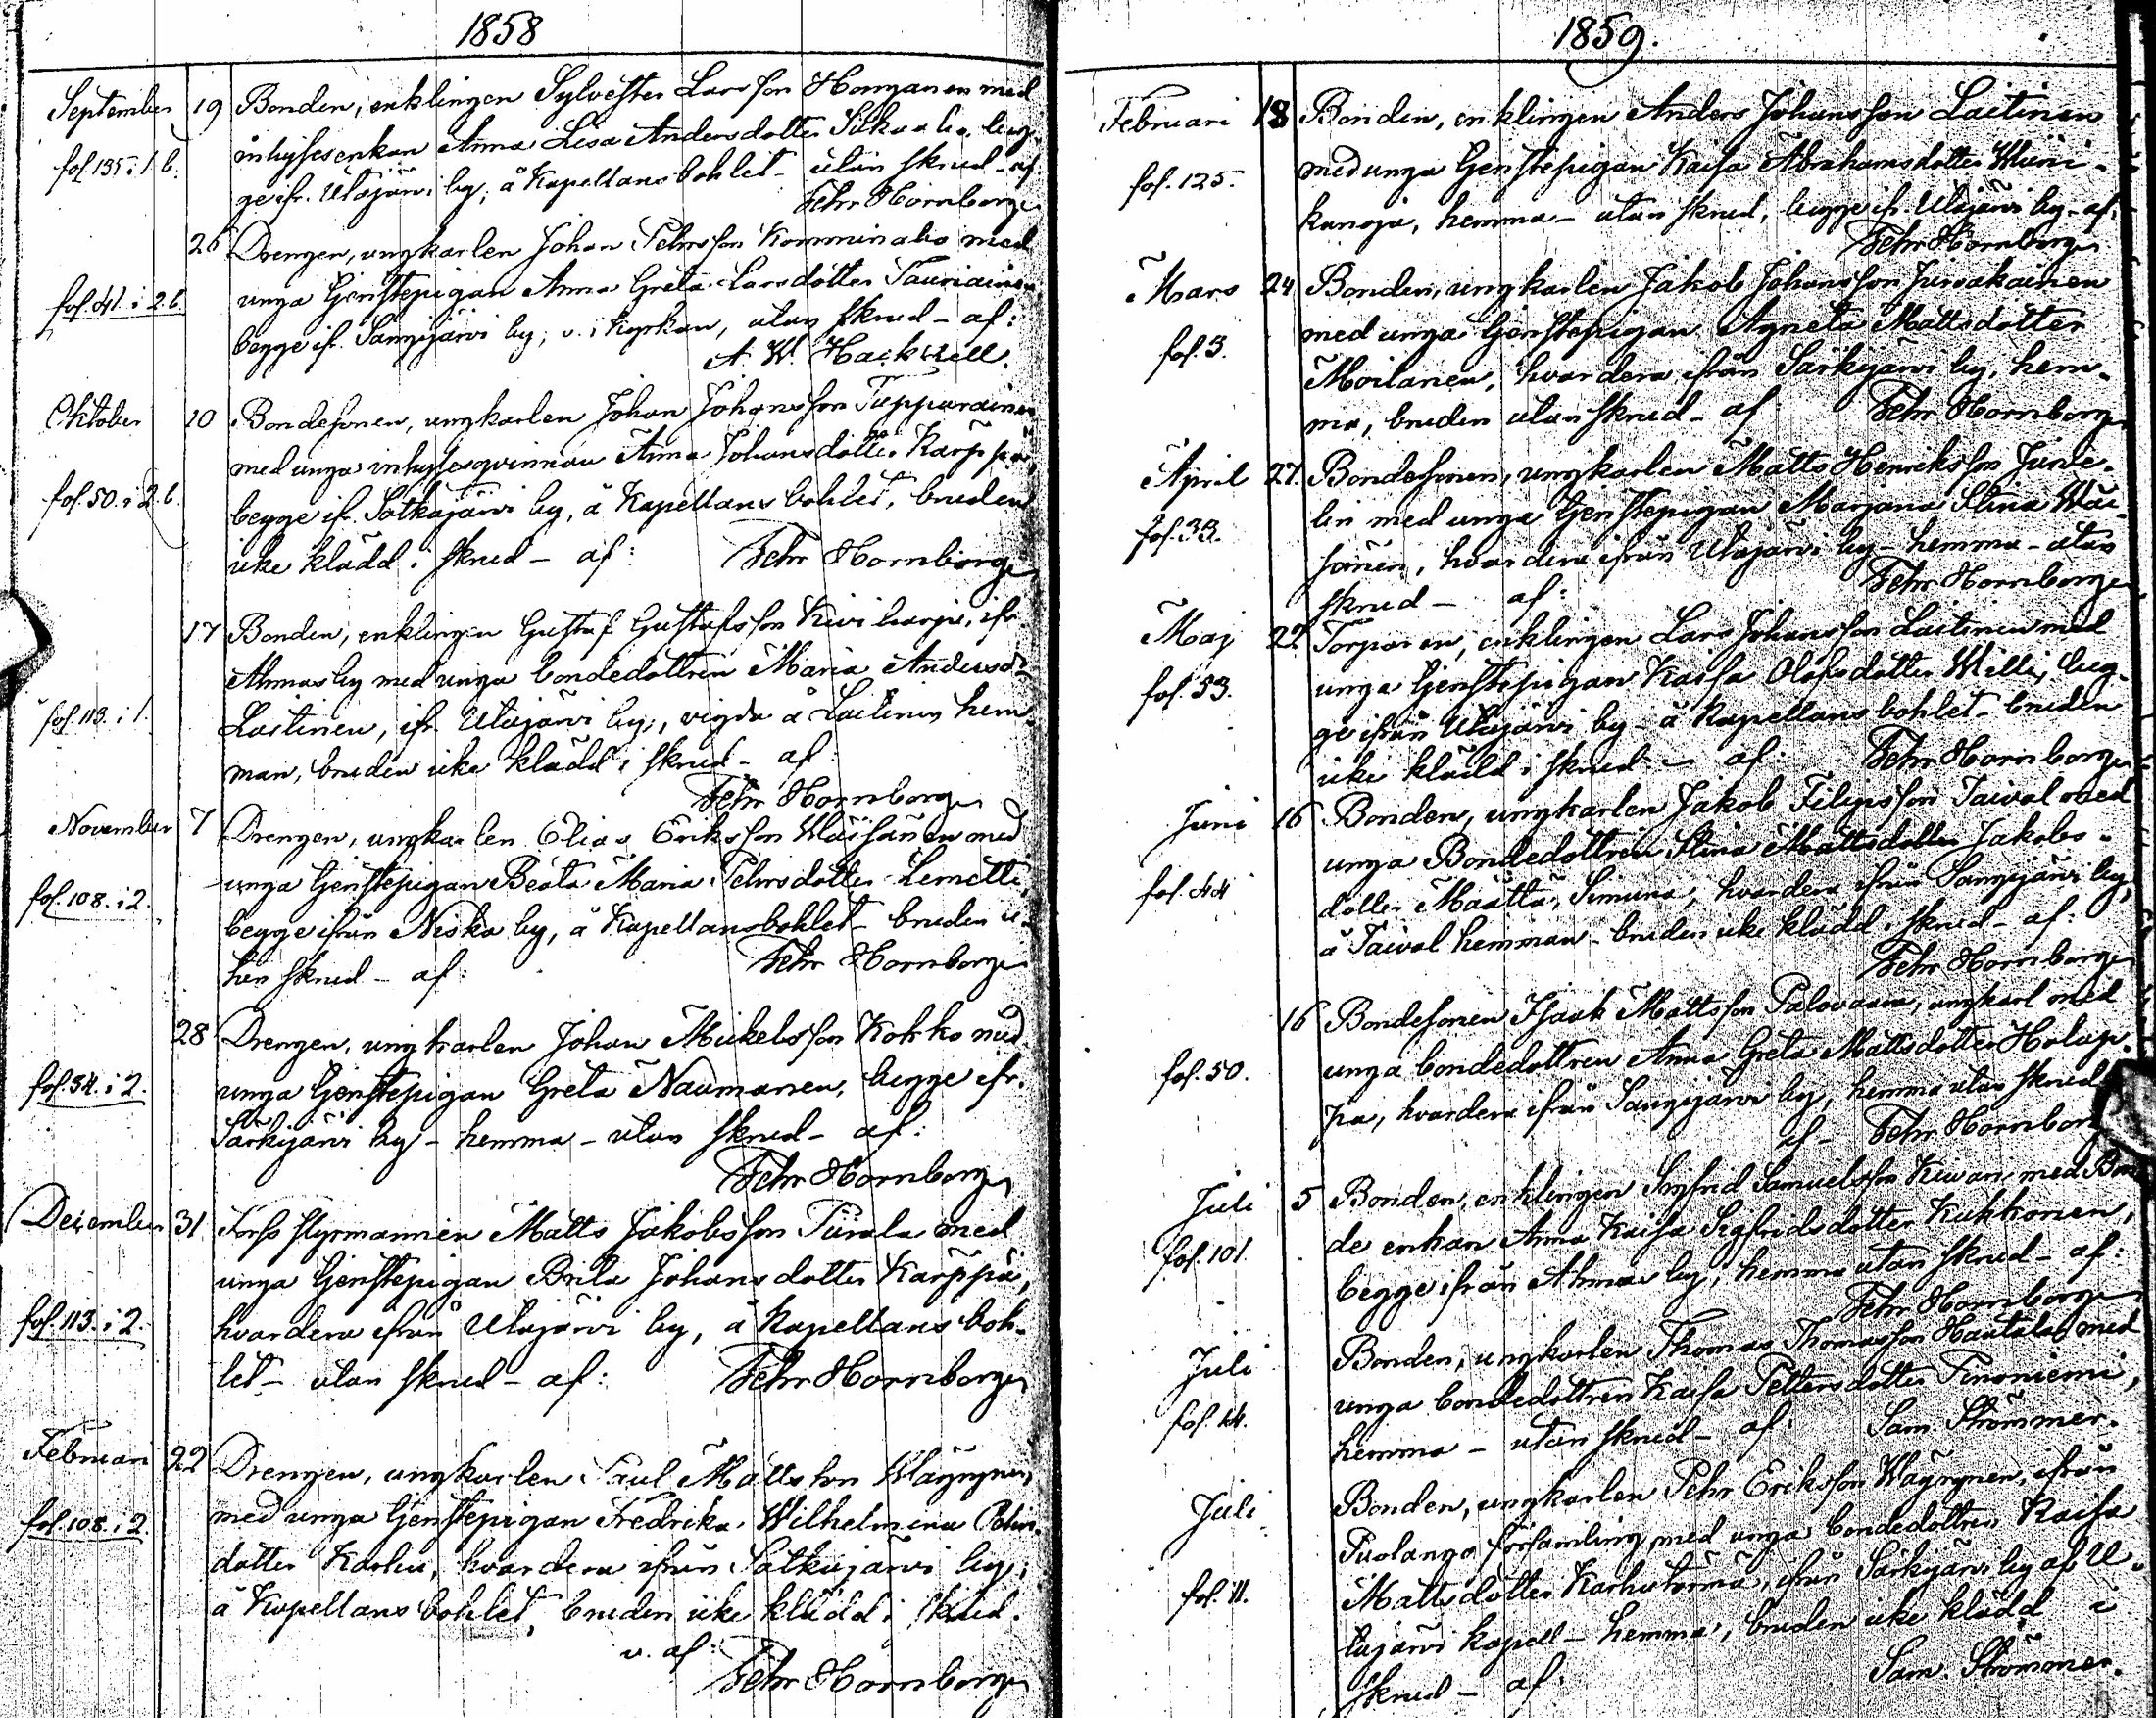 1858
September 19 Bonden, enklingen Sylvester Larsson Honganen med
inhysesenkan Anna Lisa Andersdotter beg-
fol. 135 i 1 b. ge ifr. Utajärvi by, å Kapellans bohlet - utan skrud - af:
Fehr Hornborg
26 Drengen, ungkarlen Johan Pehrsson Komminaho med
unga Genstepigan Anna Greta Larsdotter Tauriainen,
fol. 41 i 2 b. begge if. Sangijärvi by, v. i kyrkan, utan skrud - af:
A. W. Hackzell.
Oktober 10 Bondesonen, ungkarlen Johan Johansson Tuppurainen
med unga inhysesqvinnan Anna Johansdotter Karppa,
fol. 50 i 2 b. begge if. Potkojärvi by, å Kapellans bohlet, bruden
icke klädd i skrud - af: Fehr Hornborg
17 Bonden, enklingen Gustaf Gustafsson Kiviharju, ifr.
Ahmas by med unga bondedottren Maria Andersd:r
fol. 113. i 1. Laitinen, ifr. Utajärvi by, vigda å Laitinen hem-
man, bruden icke klädd i skrud - af:
Fehr Hornborg
November 7 Drengen, ungkarlen Elias Eriksson Wäisänen med
unga Genstepigan Beata Maria Pehrsdotter Lemetti,
fol. 108. i 2. begge ifrån Niska by, å Kapellansbohlet - bruden u-
tan skrud - af: Fehr Hornborg
28 Drengen, ungkarlen Johan Mickelsson Kokko med
fol. 34. i 2. unga Genstepigan Greta Naumanen, begge ifr.
Särkijärvi by - hemma - utan skrud - af:
Fehr Hornborg
December 31 Forss styrmannen Matts Jakobsson Tuirala med
unga Genstepigan Brita Johansdotter Karppa,
fol. 113. i 2. hvardera ifrån Utajärvi by, å Kapellans boh-
let - utan skrud - af: Fehr Hornborg
Februari 22 Drengen, ungkarlen Paul Mattsson Wäyrynen,
fol. 108. i 2. med unga Genstepigan Fredrika Wilhelmina Pehrs-
dotter Karhu, hvardera ifrån Potkojärvi by;
å Kapellans bohlet, bruden icke klädd i skrud.
v. af:
Fehr Hornborg
1859.
Februari 18 Bonden, enklingen Anders Johansson Laitinen
fol. 125. med unga Genstepigan Kaisa Abrahamsdotter
kanoja, hemma - utan skrud, begge if. Utajärvi by - af:
Fehr Hornborg
Mars 24 Bonden, ungkarlen Jakob Johansson Juvakainen
fol. 3. med unga Genstepigan Agneta Mattsdotter
Moilanen, hvardera ifrån Särkijärvi by, hem-
ma, bruden utan skrud - af Fehr Hornborg
April 27. Bondesonen, ungkarlen Matts Henriksson Junte-
fol. 33. lin med unga Genstepigan Marjana Stina Wäi-
sänen, hvardera ifrån Utajärvi by - hemma - utan
skrud - af: Fehr Hornborg
Maj 22 Torparen, enklingen Lars Johansson Laitinen med
fol. 53. unga Genstepigan Kaisa Olofsdotter Willi, beg-
ge ifrån Utajärvi by - å Kapellans bohlet - bruden
icke klädd i skrud - af: Fehr Hornborg
Juni 16 Bonden, ungkarlen Jakob Filipsson Taival med
unga Bondedottren Stina Mattsdotter Jakobs-
fol. 44 dotter Määttä, Simuna, hvardera ifrån Sangijärvi by,
å Taival hemman - bruden icke klädd i skrud - af:
Fehr Hornborg
16 Bondesonen Isaak Mattsson Palovaara, ungkarl med
fol. 50. unga bondedottren Anna Greta Mattsdotter Holap-
pa, hvardera ifrån Sangijärvi by, hemma utan skrud
af - Fehr Hornborg
Juli 5 Bonden, enklingen Sigfrid Samuelsson med Bon-
fol. 101. de enkan Anna Kaisa Sigfridsdotter Kukkonen,
begge ifrån Ahmas by, hemma utan skrud - af:
Fehr Hornborg
Juli Bonden, ungkarlen Thomas Thomasson Hautala med
fol. 44. unga bondedottren Kaisa Pettersdotter Tinoniemi,
hemma - utan skrud - af: Sam. Strömmer.
Juli Bonden, ungkarlen Pehr Eriksson Wäyrynen, ifrån
Puolango församling med unga bondedottren Kaisa
fol. 11. Mattsdotter Karhutörmä, ifrån Särkijärvi by af U-
tajärvi kapell - hemma, bruden icke klädd i
skrud - af: Sam. Strömmer.